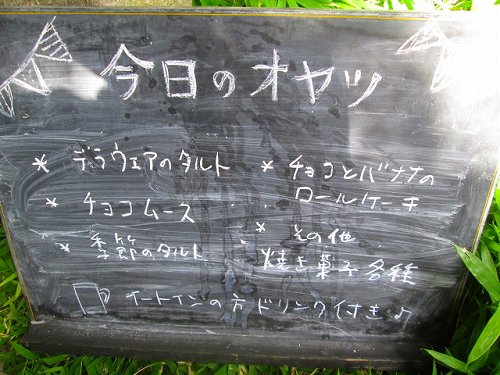 今日のオヤツ
* デラウェアのタルト
* チョコムース
* 季節のタルト
* チョコとバナナの
ロールケーキ
* その他
焼き菓子各種
イートインの方ドリンク付き♪